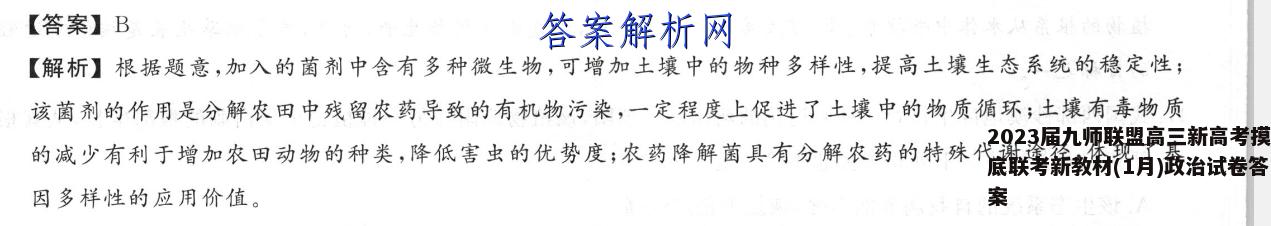 【答案】B
答案解析网
【解析】根据题意,加入的菌剂中含有多种微生物,可增加土壤中的物种多样性,提高土壤生态系统的稳定性;
该菌剂的作用是分解农田中残留农药导致的有机物污染,一定程度上促进了土壤中的物质循环;土壤有毒物质
的减少有利于增加农田动物的种类,降低害虫的优势度;农药降解菌具有分解农药的特殊代谢途径,体现了基
因多样性的应用价值。
2023届九师联盟高三新高考摸
底联考新教材(1月)政治试卷答
案